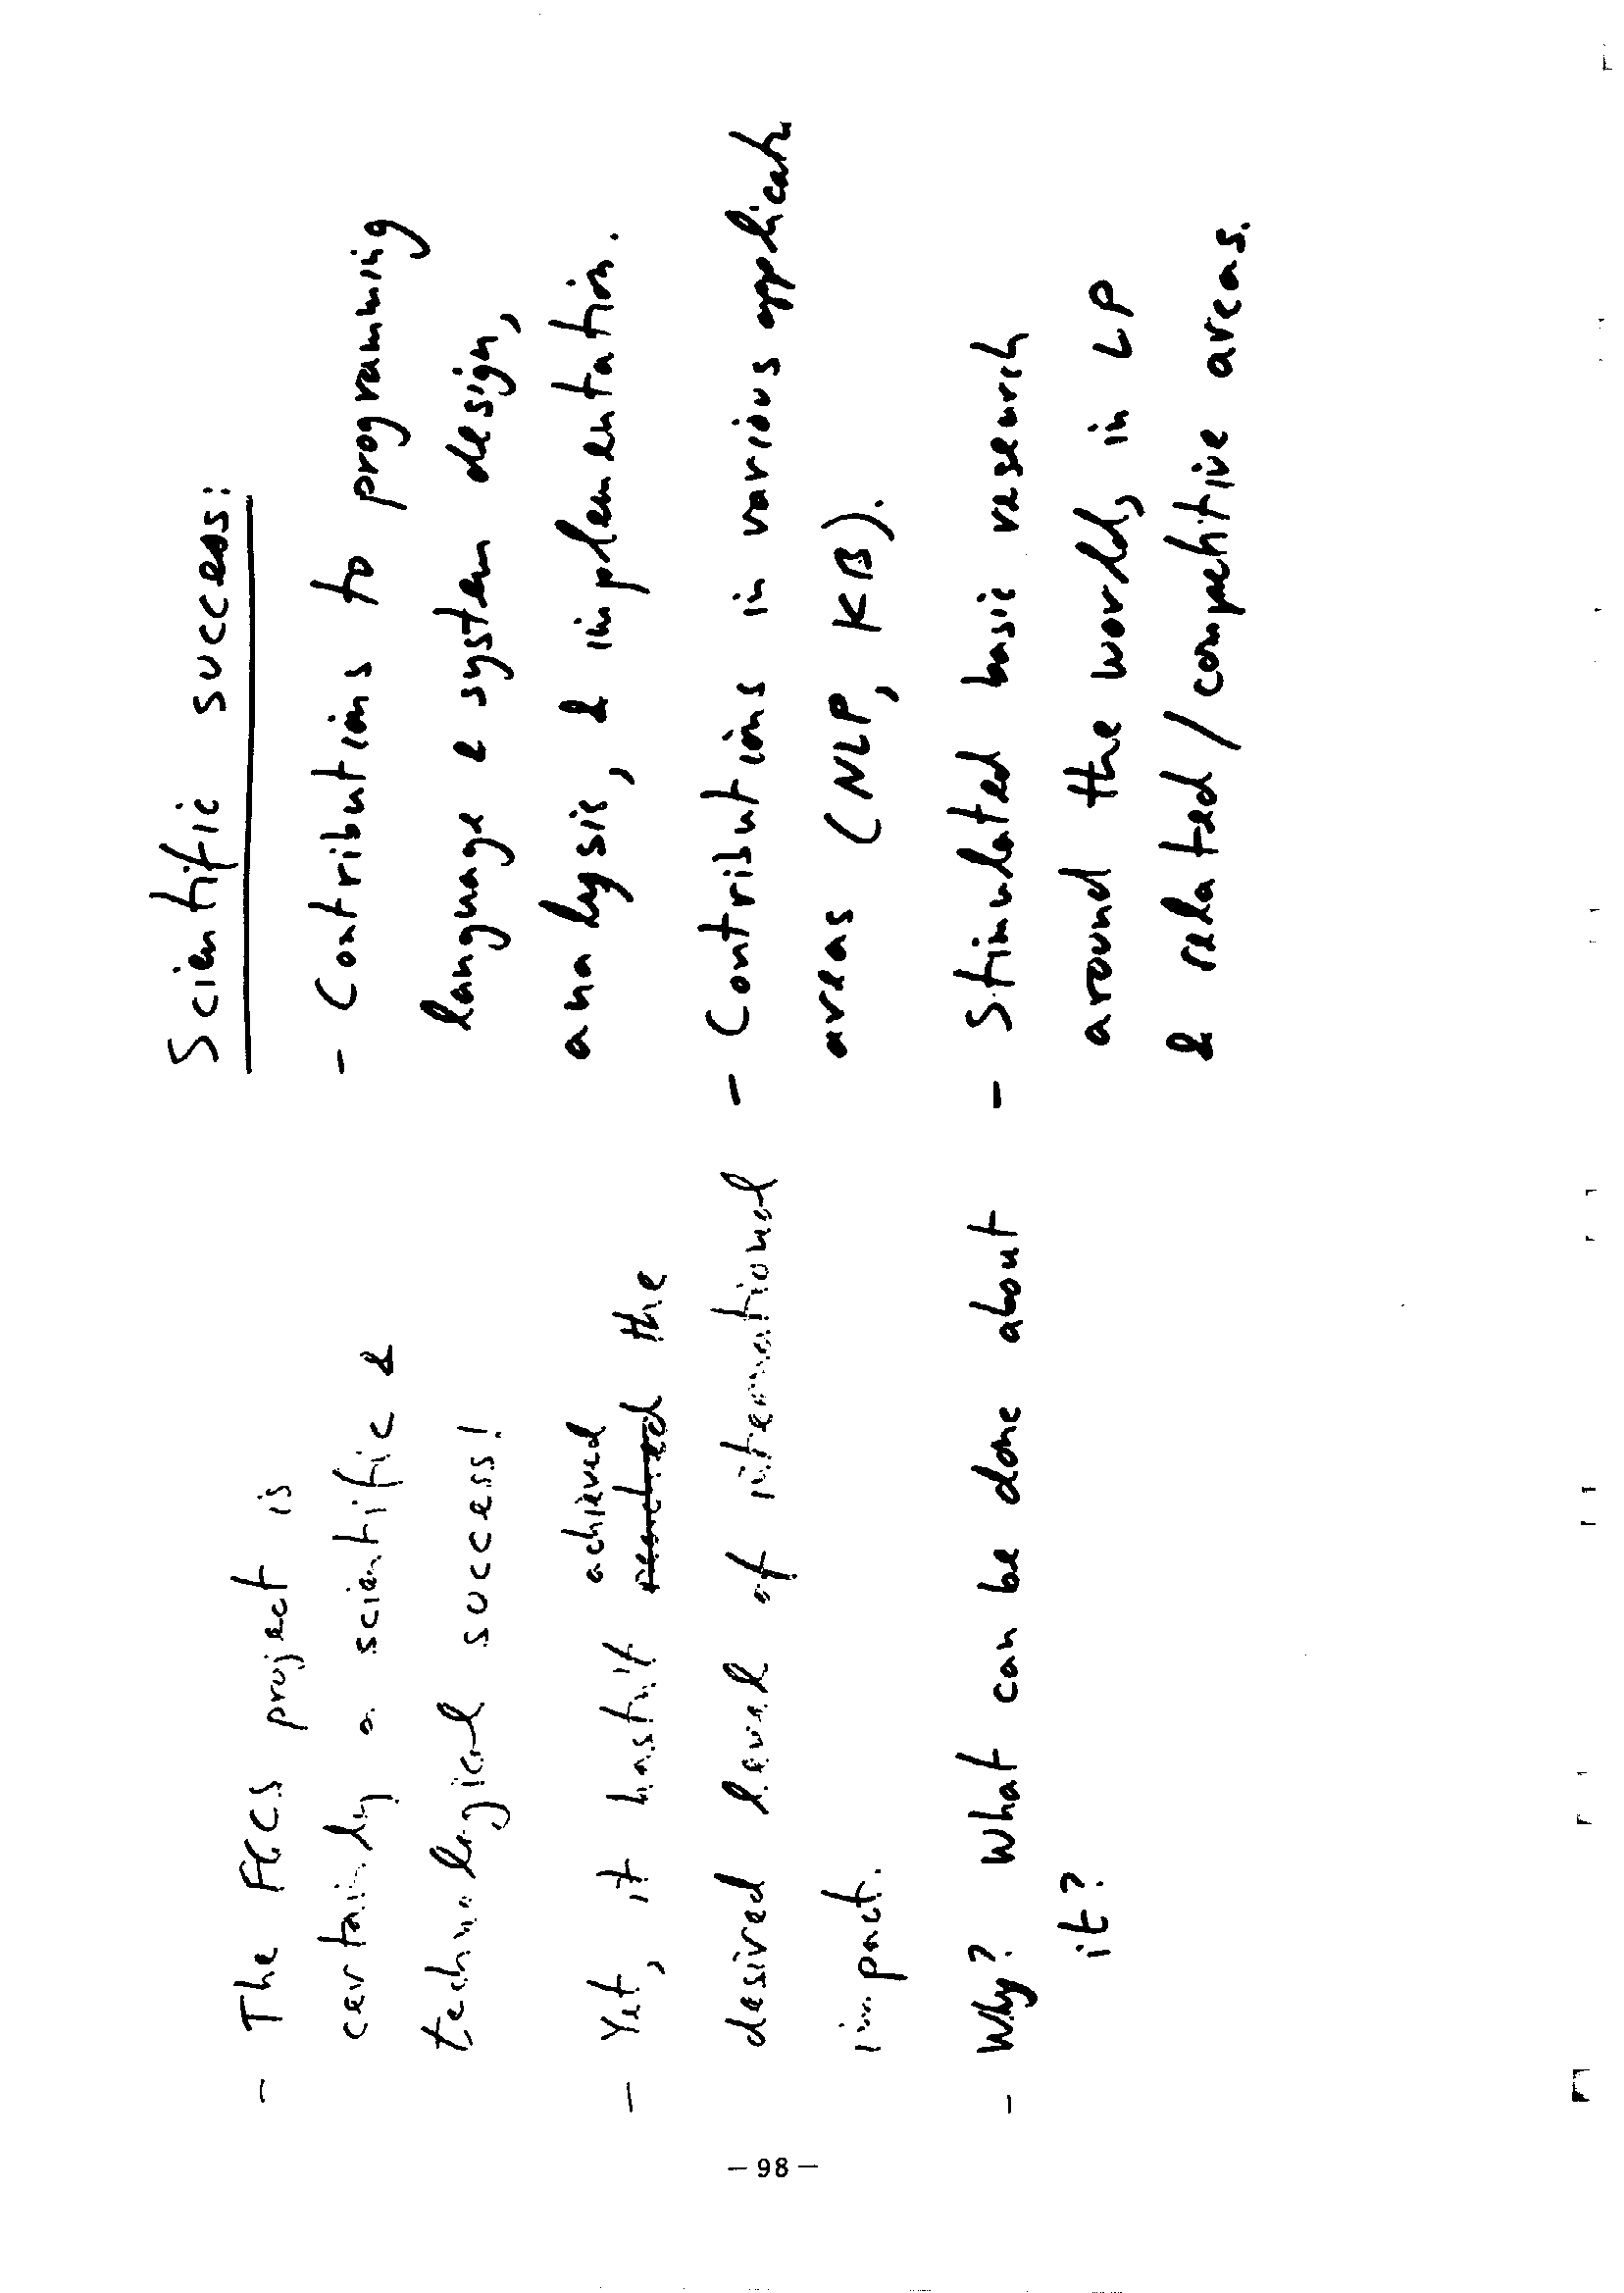 - The FGCS project is
certainly a scientific &
technological success!
- Yet, it hasn't achieved
reached the
desired level of international
impact.
- Why? What can be done about
it?
Scientific success:
- Contributions to programming
language & system design,
analysis, & implementation.
- Contributions in various applicat.
areas (NLP, KB).
- Stimulated basic research
around the world, in LP
& related/competitive areas.
- 98 -